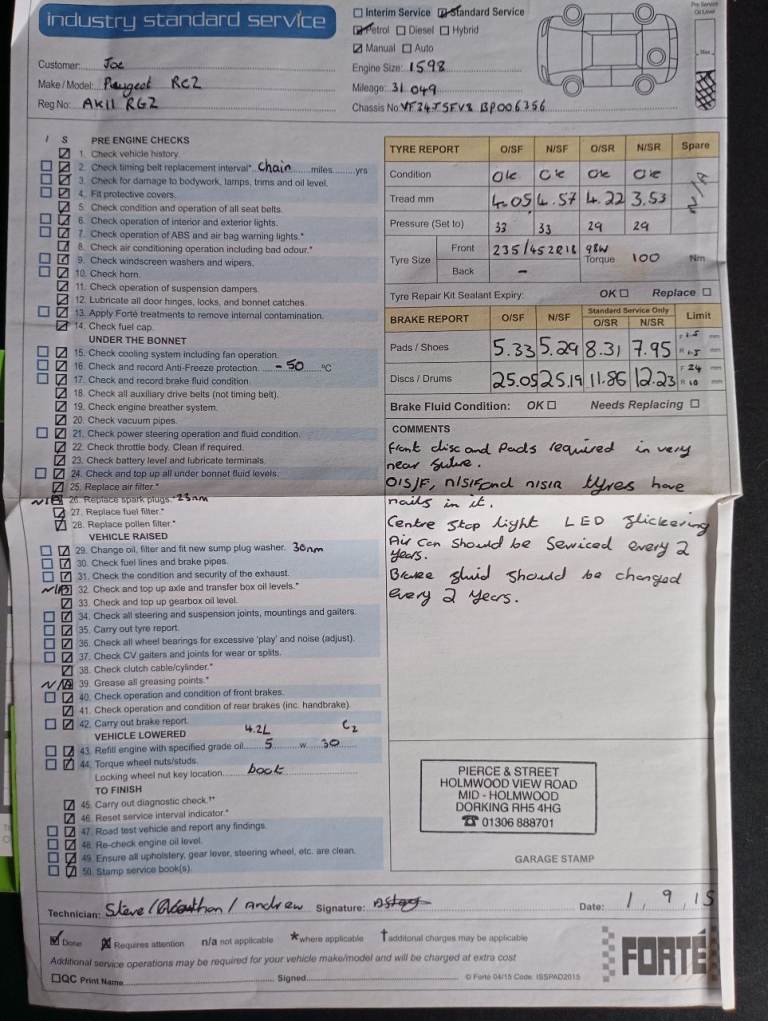 industry standard service
Interim Service Standard Service
Petrol Diesel Hybrid
Manual Auto
Customer: Joe
Engine Size: 1598
Make / Model: Peugeot RCZ
Mileage: 31,049
Reg No: AK11 RGZ
Chassis No:
I S PRE ENGINE CHECKS
1. Check vehicle history.
2. Check timing belt replacement interval* Chain miles yrs
3. Check for damage to bodywork, lamps, trims and oil level.
4. Fit protective covers.
5. Check condition and operation of all seat belts.
6. Check operation of interior and exterior lights.
7. Check operation of ABS and air bag warning lights.*
8. Check air conditioning operation including bad odour.*
9. Check windscreen washers and wipers.
10. Check horn.
11. Check operation of suspension dampers.
12. Lubricate all door hinges, locks, and bonnet catches.
13. Apply Forté treatments to remove internal contamination.
14. Check fuel cap.
UNDER THE BONNET
15. Check cooling system including fan operation.
16. Check and record Anti-Freeze protection. -50 °C
17. Check and record brake fluid condition.
18. Check all auxiliary drive belts (not timing belt).
19. Check engine breather system.
20. Check vacuum pipes.
21. Check power steering operation and fluid condition.
22. Check throttle body. Clean if required.
23. Check battery level and lubricate terminals.
24. Check and top up all under bonnet fluid levels.
25. Replace air filter.*
N/A 26. Replace spark plugs.* 23nm
27. Replace fuel filter.*
28. Replace pollen filter.*
VEHICLE RAISED
29. Change oil, filter and fit new sump plug washer. 30nm
30. Check fuel lines and brake pipes.
31. Check the condition and security of the exhaust.
N/A 32. Check and top up axle and transfer box oil levels.*
33. Check and top up gearbox oil level.
34. Check all steering and suspension joints, mountings and gaiters.
35. Carry out tyre report.
36. Check all wheel bearings for excessive 'play' and noise (adjust).
37. Check CV gaiters and joints for wear or splits.
38. Check clutch cable/cylinder.*
N/A 39. Grease all greasing points.*
40. Check operation and condition of front brakes.
41. Check operation and condition of rear brakes (inc. handbrake).
42. Carry out brake report.
VEHICLE LOWERED 4.2L C2
43. Refill engine with specified grade oil 5 w 30
44. Torque wheel nuts/studs.
Locking wheel nut key location boot
TO FINISH
45. Carry out diagnostic check.†*
46. Reset service interval indicator.*
47. Road test vehicle and report any findings.
48. Re-check engine oil level.
49. Ensure all upholstery, gear lever, steering wheel, etc. are clean.
50. Stamp service book(s).
Pre Service
Oil Level
Max
TYRE REPORT O/SF N/SF O/SR N/SR Spare
Condition Ok Ok Ok Ok N/A
Tread mm 4.05 4.57 4.22 3.53
Pressure (Set to) 33 33 29 29
Tyre Size Front 235/452R18 98W
Torque 100 Nm
Back -
Tyre Repair Kit Sealant Expiry: OK Replace
BRAKE REPORT O/SF N/SF Standard Service Only O/SR N/SR Limit
Pads / Shoes 5.33 5.29 8.31 7.95 F 1.5 mm R 1.5 mm
Discs / Drums 25.05 25.19 11.86 12.23 F 24 mm R 10 mm
Brake Fluid Condition: OK Needs Replacing
COMMENTS
Front disc and Pads required in very
near future.
O/S/F, N/S/F and N/S/R tyres have
nails in it.
Centre Stop light LED flickering
Air Con Should be Serviced every 2
years.
Brake fluid should be changed
every 2 years.
PIERCE & STREET
HOLMWOOD VIEW ROAD
MID - HOLMWOOD
DORKING RH5 4HG
☎ 01306 888701
GARAGE STAMP
Technician: Steve / / Andrew Signature: Date: 1, 9, 15
Done Requires attention n/a not applicable *where applicable †additonal charges may be applicable
Additional service operations may be required for your vehicle make/model and will be charged at extra cost
QC Print Name Signed © Forté 04/15 Code: ISSPAD2015
FORTÉ